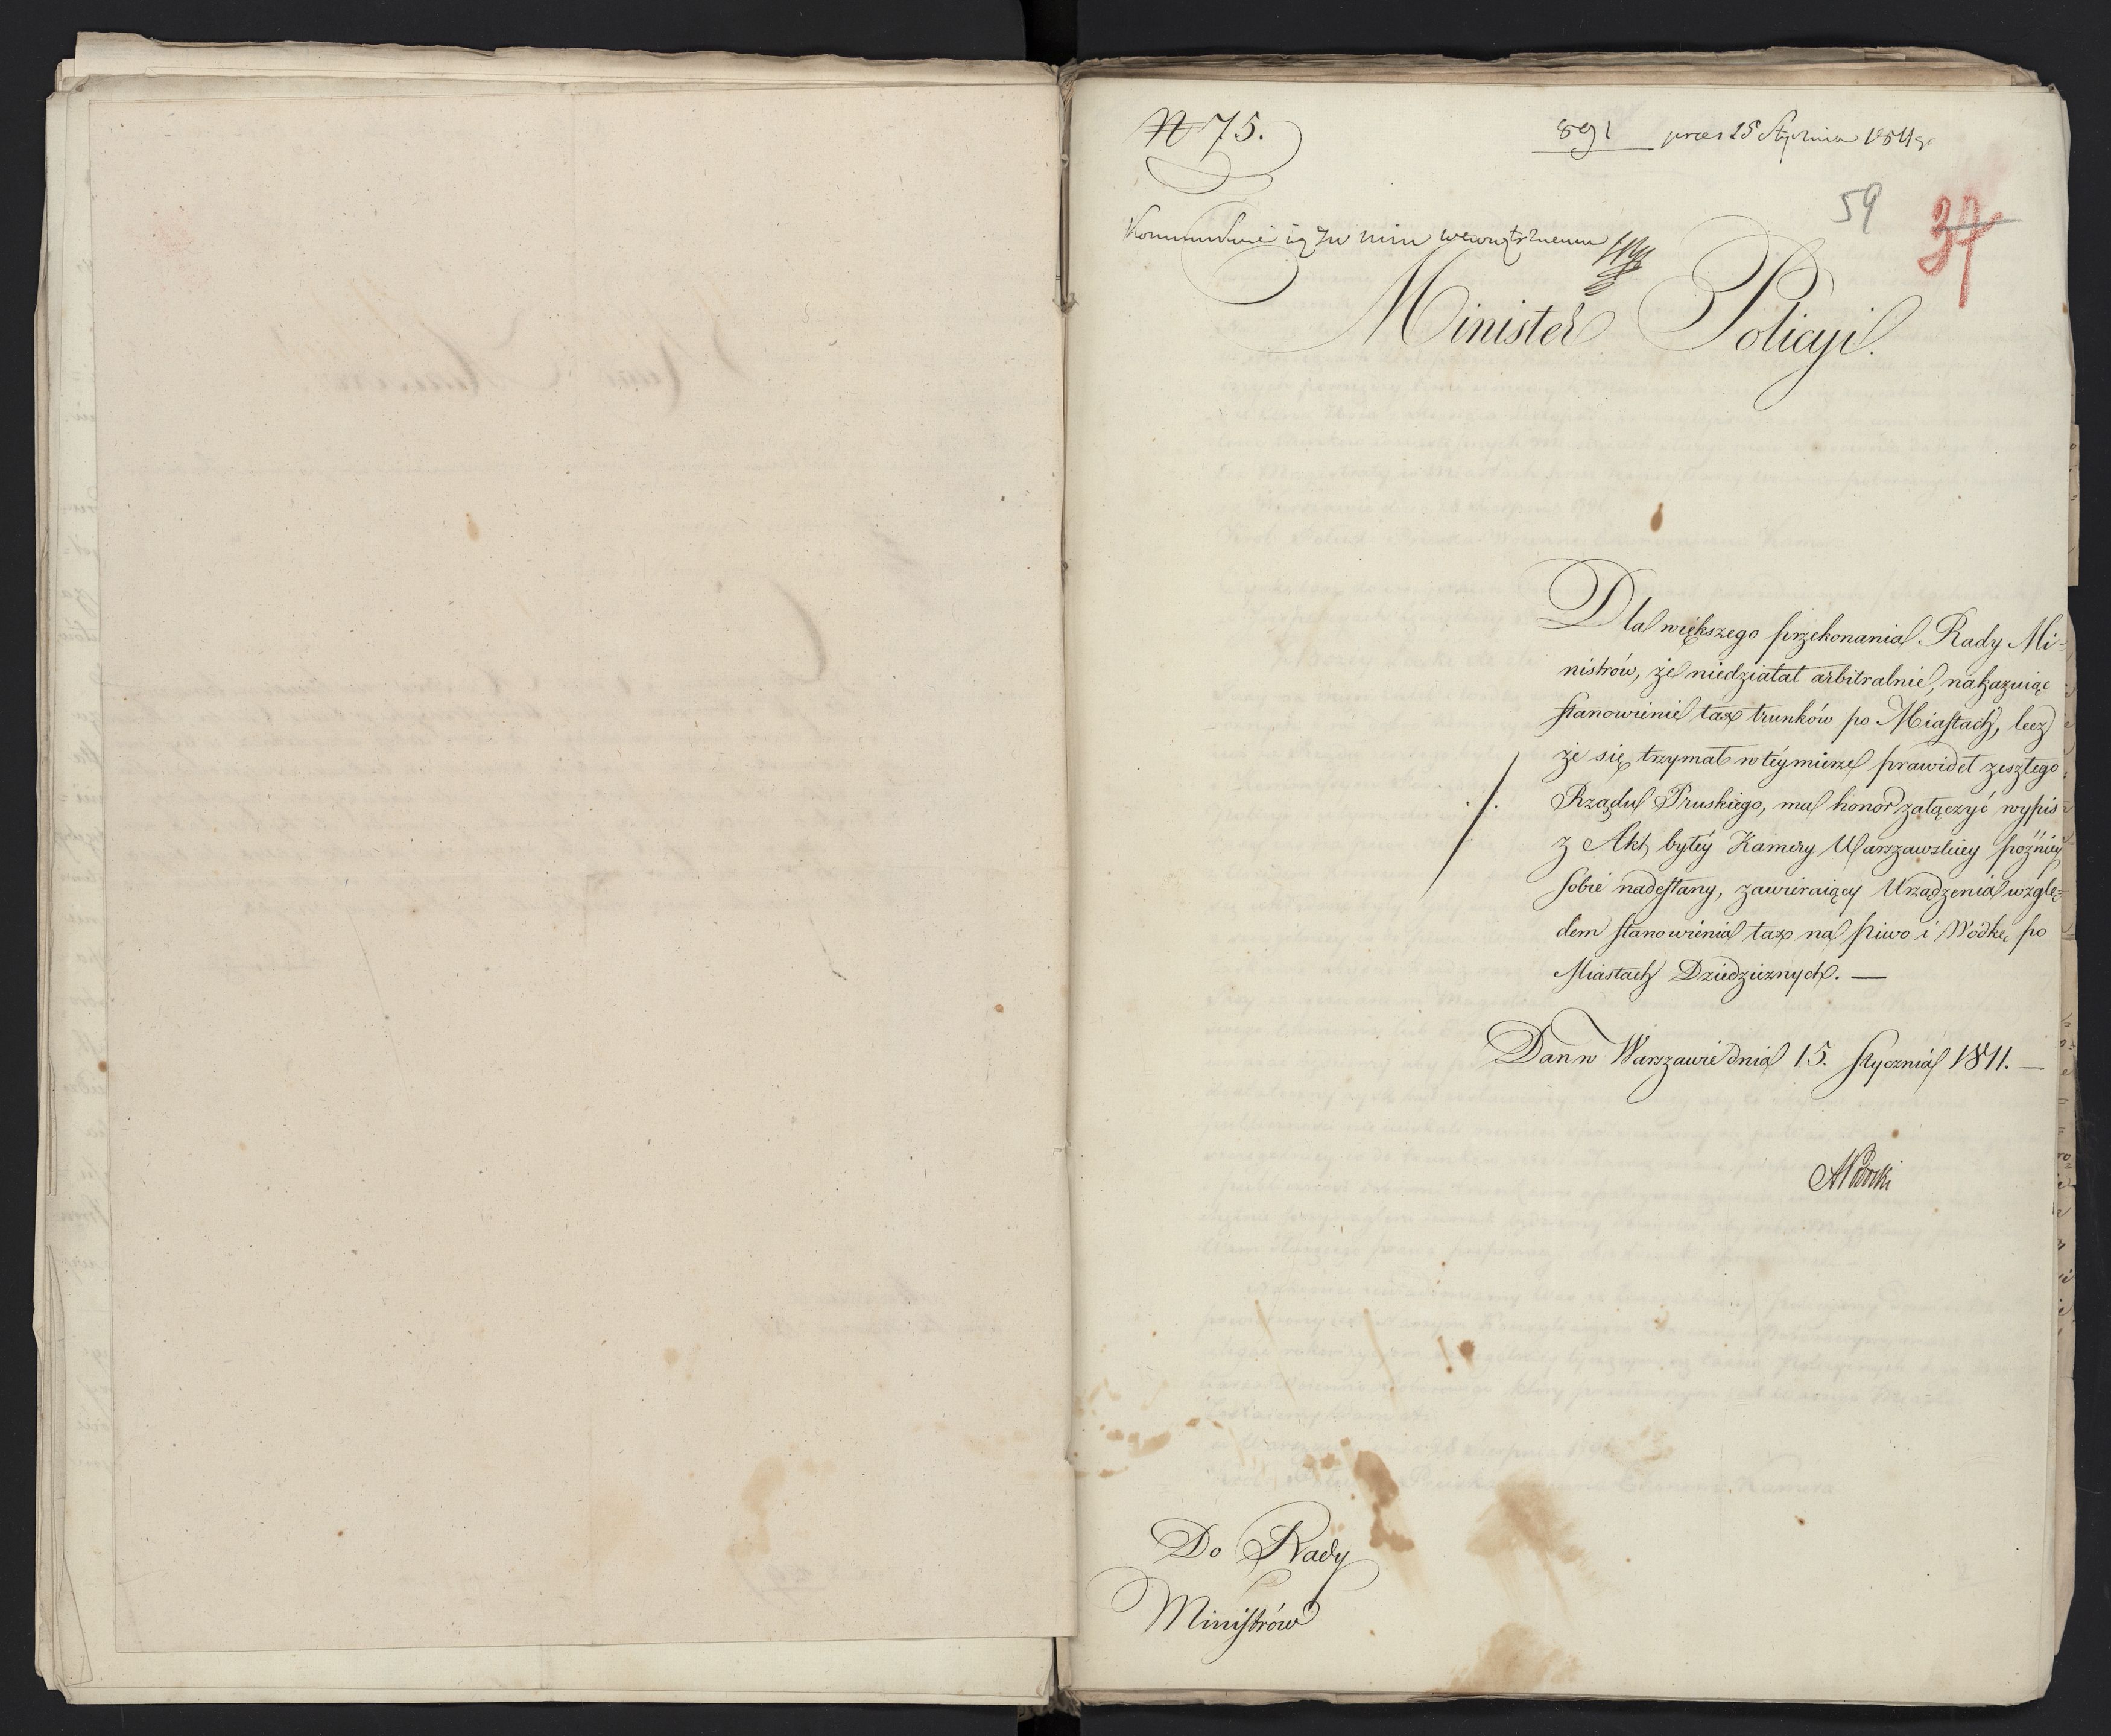 N 75.
891 præs 25 Stycznia 1811 r.
59
37
Kommunikuie się JW Min wewnętrznemu
Minister Policyi.
Dla większego przekonania Rady Mi-
nistrów, że niedziałał arbitralnie, nakazuiąc
stanowienie tax trunków po Miastach, lecz
że się trzymał w téy mierze prawideł zeszłego
Rządu Pruskiego, ma honor załączyć wypis
z Akt byłéy Kamery Warszawskiey poźniéy
sobie nadesłany, zawieraiący Urządzenia wzglę-
dem stanowienia tax na piwo i Wodkę po
Miastach Dziedzicznych. —
Dan w Warszawie dnia 15. Stycznia 1811. —
Do Rady
Ministrów